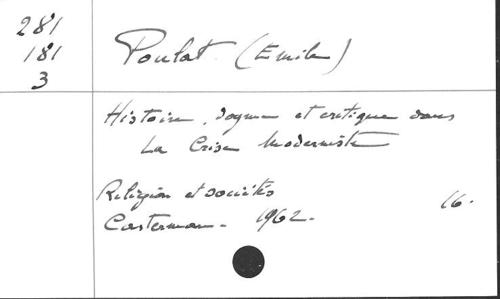 281
181
3
Poulat. (Emile)
Histoire, dogme et critique dans
La Crise Moderniste
Religion et sociétés
Casterman - 1962.
16.